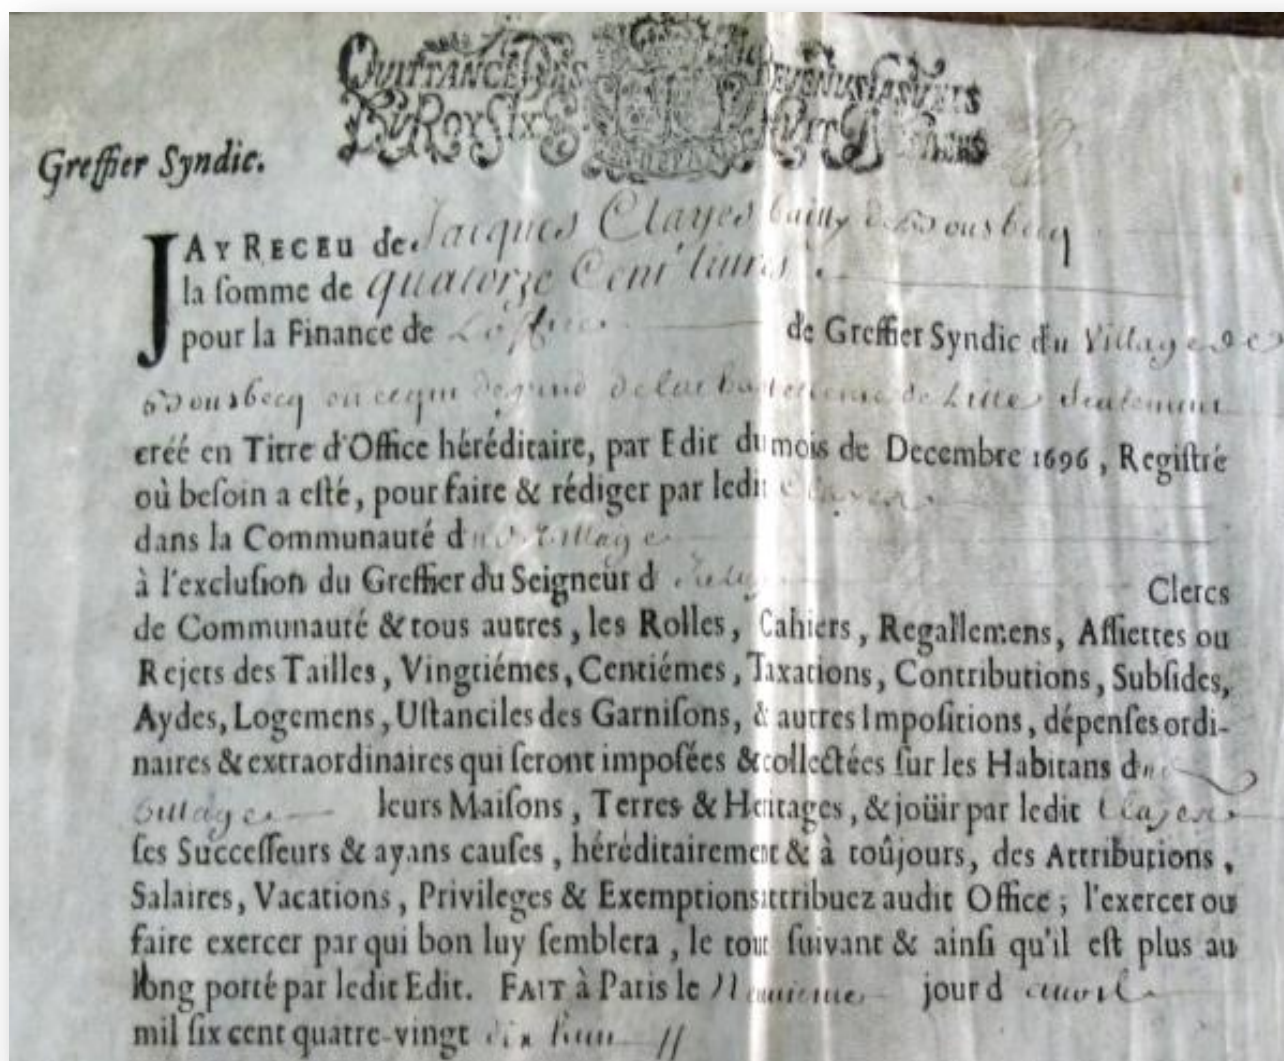 QUITTANCE DES REVENUS CASUELS
DU ROY SIX
Greffier Syndic.
JAY RECEU de Jacques Clayes bailly de Bousbecq
la somme de quatorze Cent livres
pour la Finance de L'office de Greffier Syndic du Village de
Bousbecq en ce qui depend de la Chastellenie de Lille Seulement
créé en Titre d'Office héréditaire, par Edit du mois de Decembre 1696, Registré
où besoin a esté, pour faire & rédiger par ledit Clayes
dans la Communauté dud. Village
à l'exclusion du Greffier du Seigneur d Clercs
de Communauté & tous autres, les Rolles, Cahiers, Regallemens, Assiettes ou
Rejets des Tailles, Vingtiémes, Centiémes, Taxations, Contributions, Subsides,
Aydes, Logemens, Ustanciles des Garnisons, & autres Impositions, dépenses ordi-
naires & extraordinaires qui seront imposées & collectées sur les Habitans du
Village leurs Maisons, Terres & Heritages, & joüir par ledit Clayes
ses Successeurs & ayans causes, héréditairement & à toûjours, des Attributions,
Salaires, Vacations, Privileges & Exemptions attribuez audit Office; l'exercer ou
faire exercer par qui bon luy semblera, le tout suivant & ainsi qu'il est plus au
long porté par ledit Edit. FAIT à Paris le Neuvieme jour d avril
mil six cent quatre-vingt dix huit